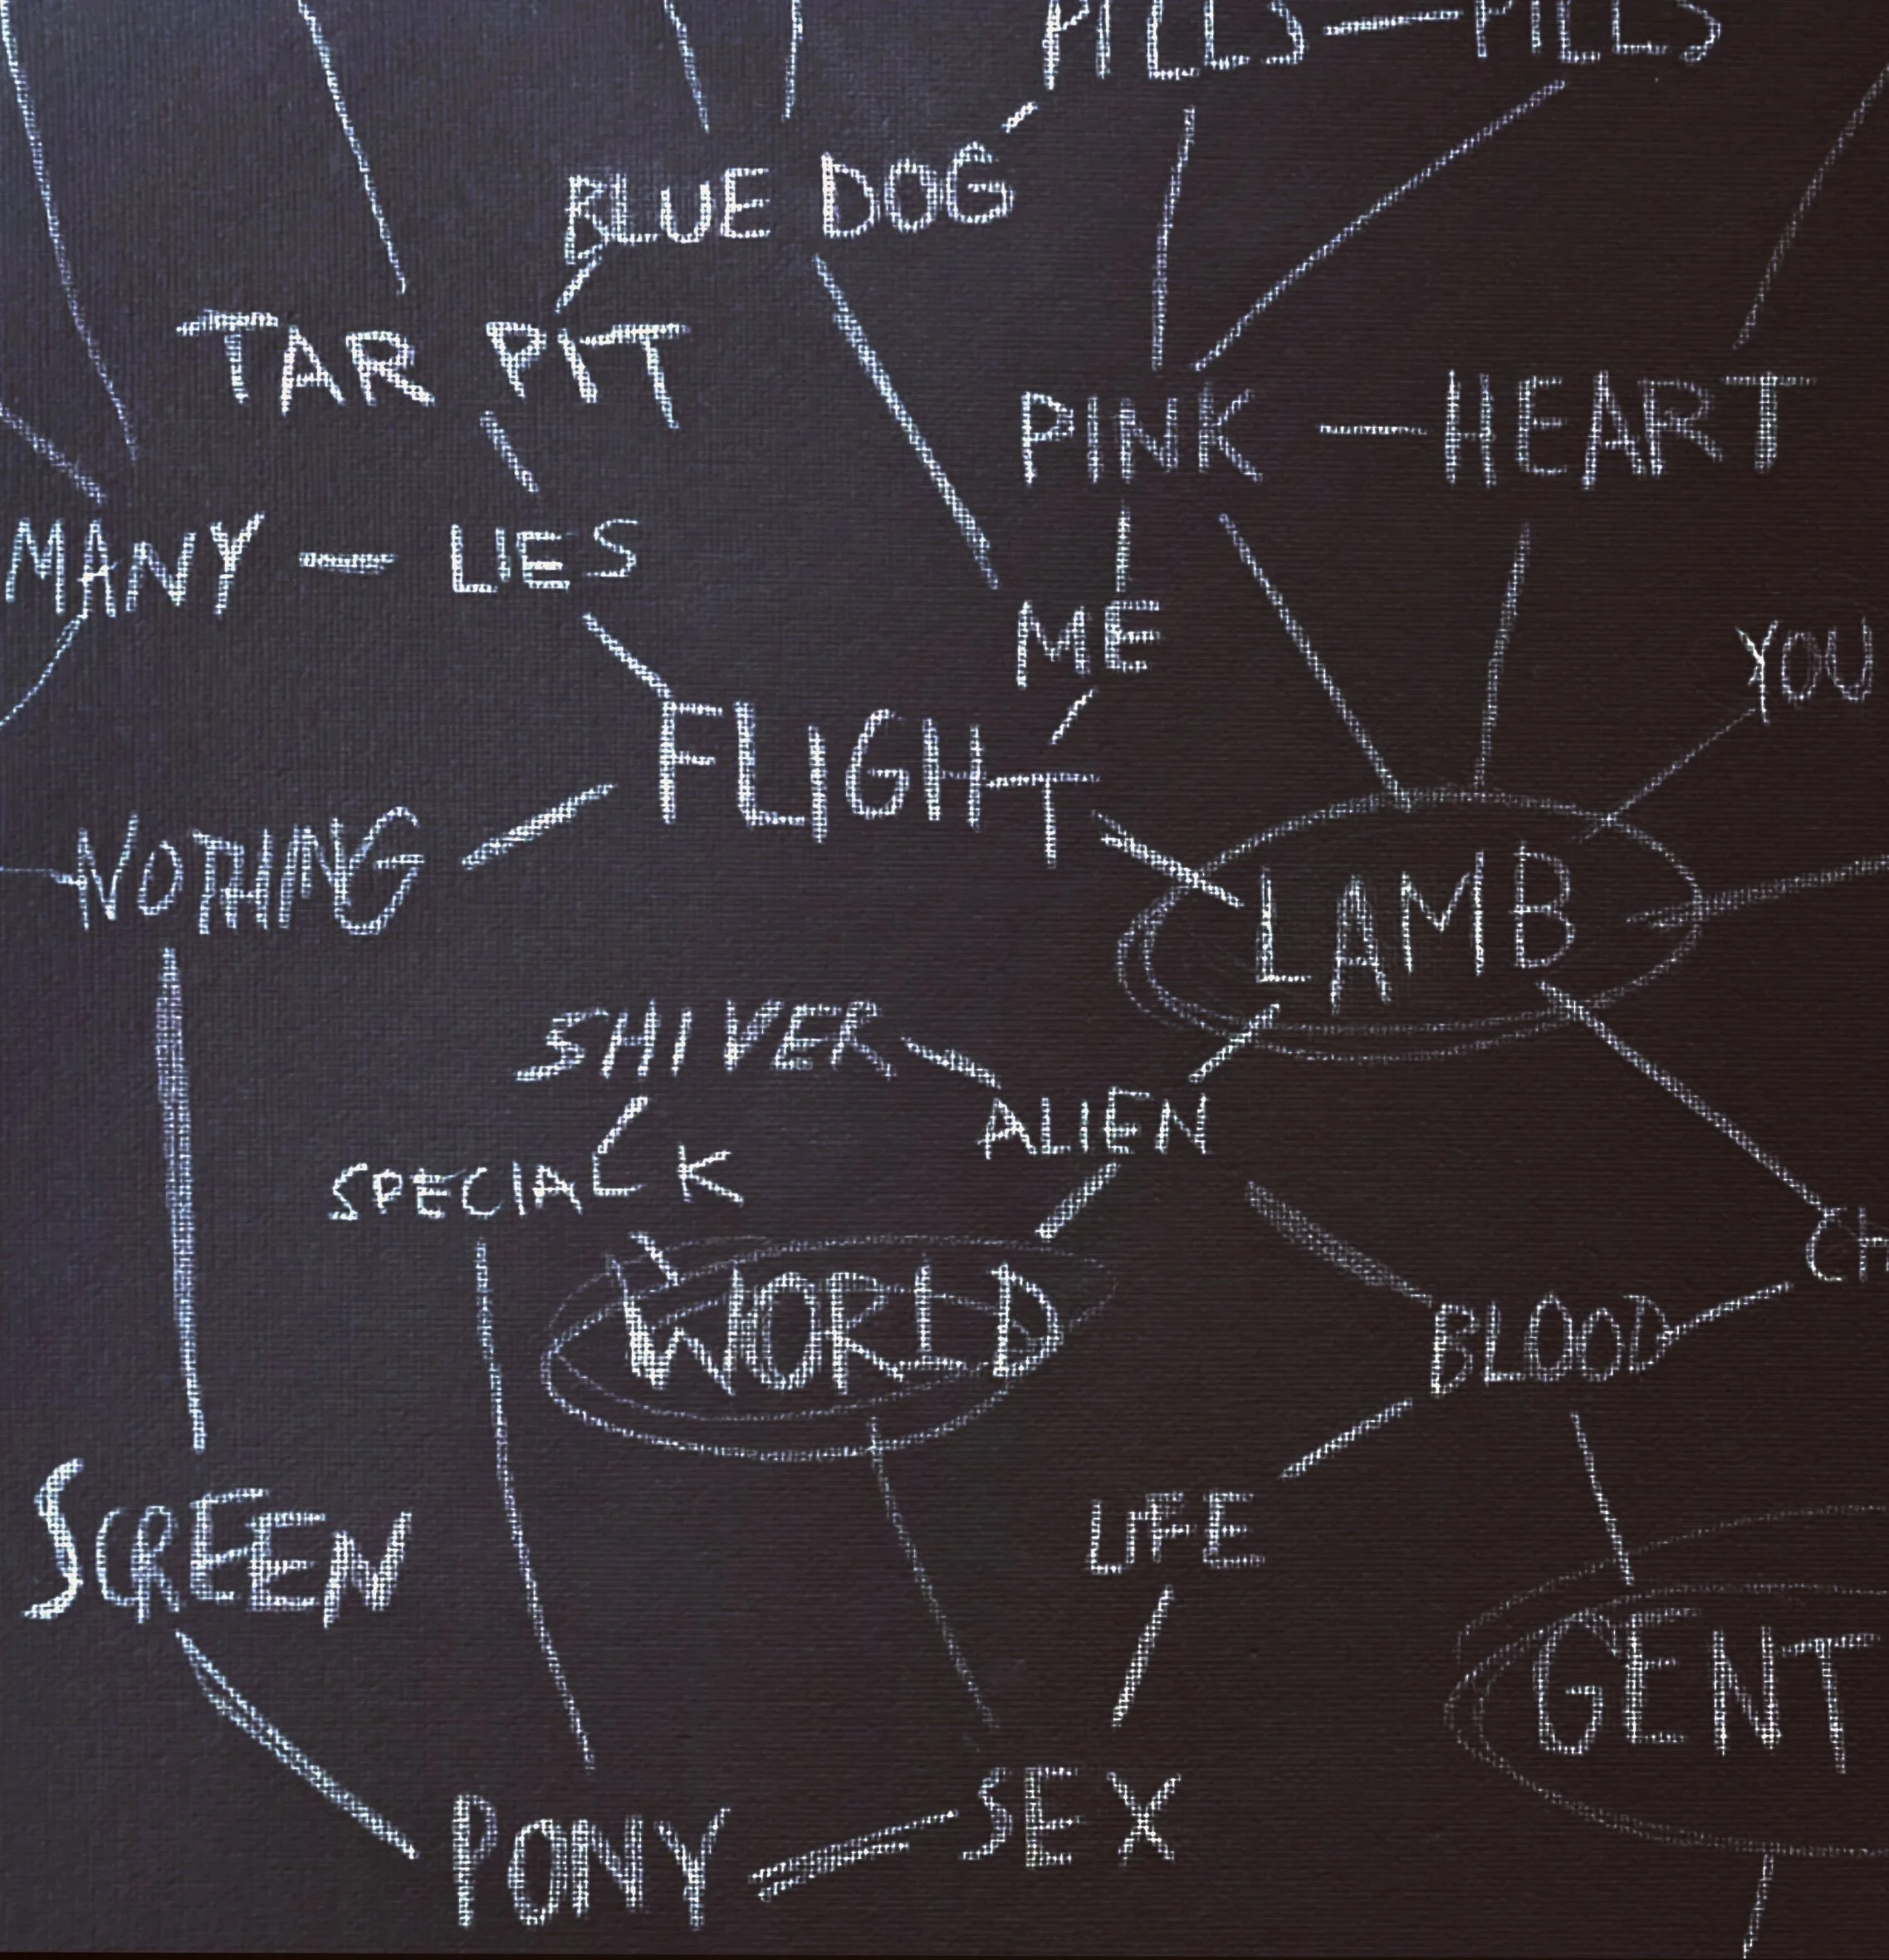 PILLS — PILLS
BLUE DOG
TAR PIT
PINK — HEART
MANY — LIES
ME
YOU
FLIGHT
NOTHING
LAMB
SHIVER
ALIEN
SPECIAL K
CH
WORLD
BLOOD
LIFE
SCREEN
GENT
PONY
SEX